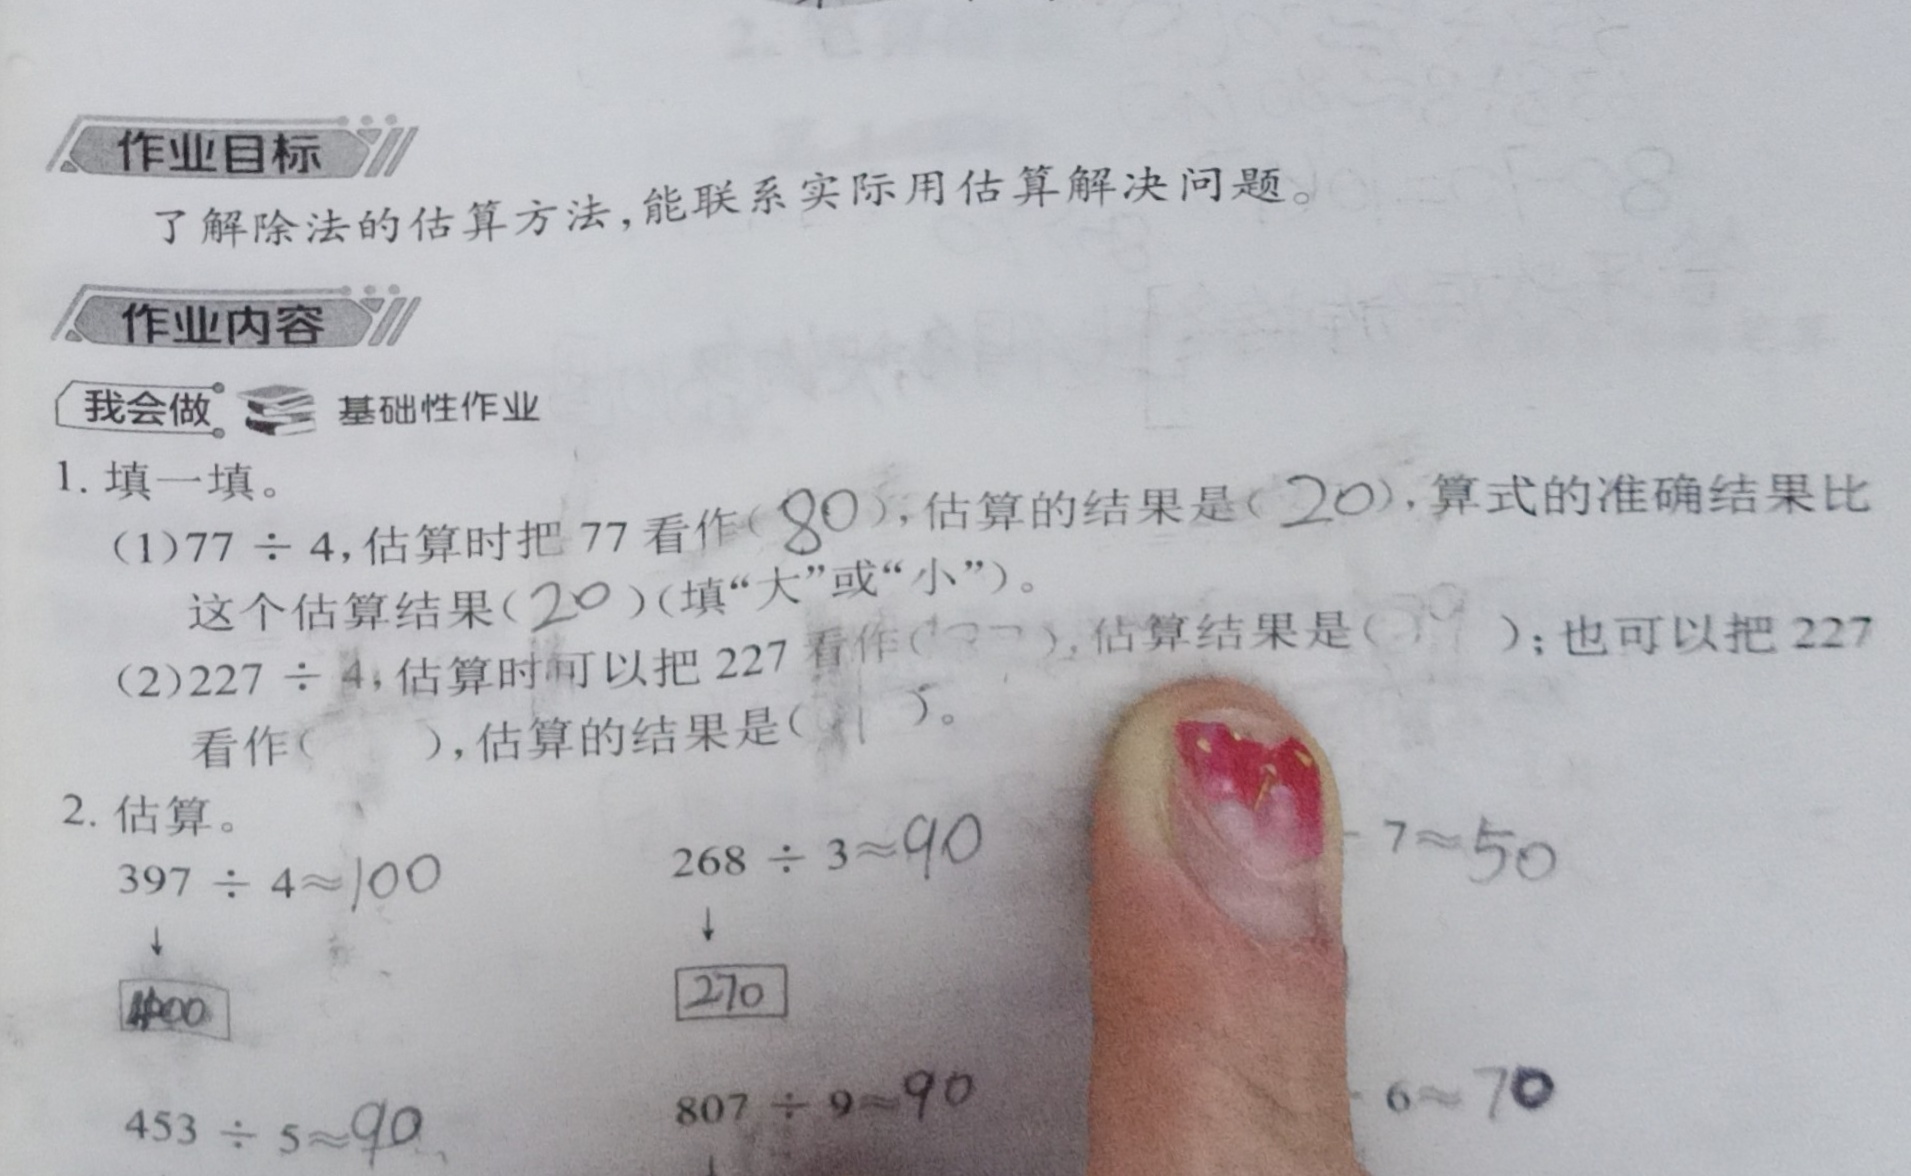 作业目标
了解除法的估算方法,能联系实际用估算解决问题。
作业内容
我会做 基础性作业
1. 填一填。
(1)77 ÷ 4,估算时把 77 看作(80),估算的结果是(20),算式的准确结果比
这个估算结果(20)(填“大”或“小”)。
(2)227 ÷ 4,估算时可以把 227 看作( ),估算结果是( );也可以把 227
看作( ),估算的结果是( )。
2. 估算。
397 ÷ 4≈100 268 ÷ 3≈90 7≈50
↓ ↓
400 270
453 ÷ 5≈90 807 ÷ 9≈90 6≈70